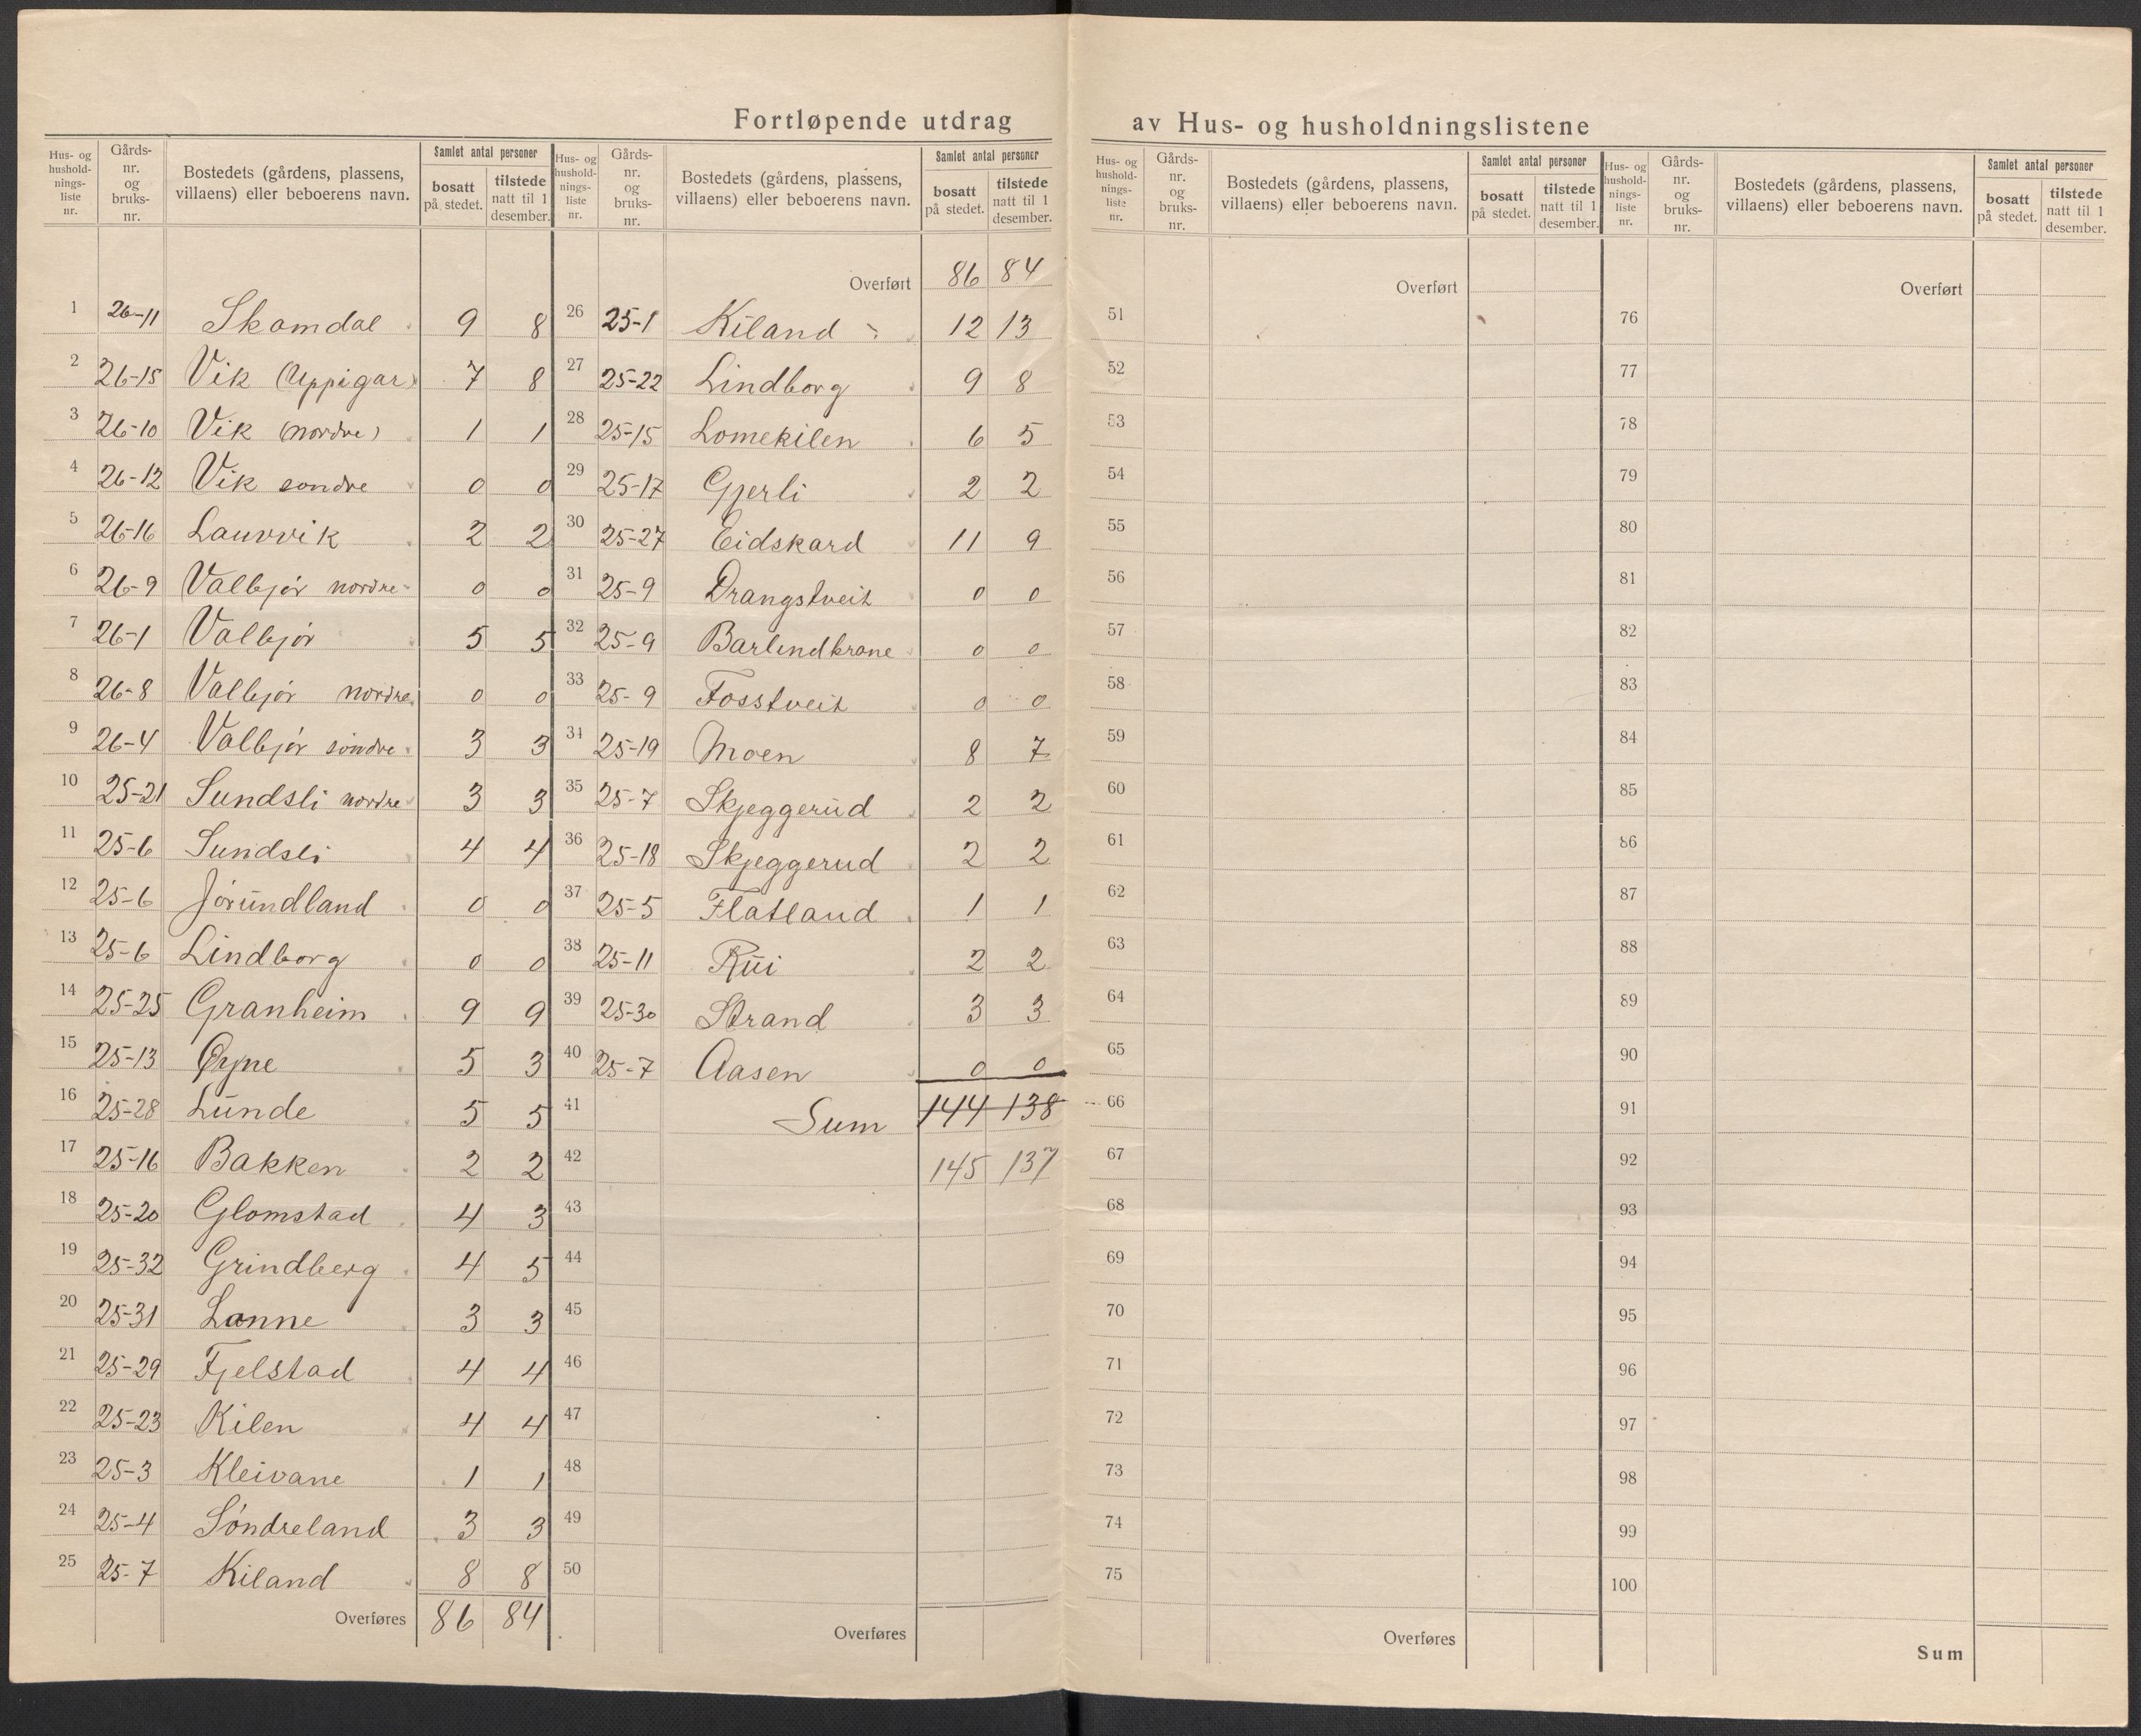 Fortløpende utdrag av Hus- og husholdningslistene
Hus- og hushold-nings-liste nr. | Gårds-nr. og bruks-nr. | Bostedets (gårdens, plassens, villaens) eller beboerens navn. | Samlet antal personer bosatt på stedet. | tilstede natt til 1 desember.
1 26-11 Skomdal 9 8
2 26-15 Vik (Uppigar) 7 8
3 26-10 Vik (nordre) 1 1
4 26-12 Vik søndre 0 0
5 26-16 Lauvvik 2 2
6 26-9 Valbjór nordre 0 0
7 26-1 Valbjór 5 5
8 26-8 Valbjór nordre 0 0
9 26-4 Valbjór søndre 3 3
10 25-21 Sundsli nordre 3 3
11 25-6 Sundsli 4 4
12 25-6 Jórundland 0 0
13 25-6 Lindborg 0 0
14 25-25 Granheim 9 9
15 25-13 Øyne 5 3
16 25-28 Lunde 5 5
17 25-16 Bakken 2 2
18 25-20 Glomstad 4 3
19 25-32 Grindberg 4 5
20 25-31 Lonne 3 3
21 25-29 Fjelstad 4 4
22 25-23 Kilen 4 4
23 25-3 Kleivane 1 1
24 25-4 Söndreland 3 3
25 25-7 Kiland 8 8
Overføres 86 84
Hus- og hushold-nings-liste nr. | Gårds-nr. og bruks-nr. | Bostedets (gårdens, plassens, villaens) eller beboerens navn. | Samlet antal personer bosatt på stedet. | tilstede natt til 1 desember.
Overført 86 84
26 25-1 Kiland 12 13
27 25-22 Lindborg 9 8
28 25-15 Lomekilen 6 5
29 25-17 Gjerli 2 2
30 25-27 Eidskard 11 9
31 25-9 Drangstveit 0 0
32 25-9 Barlindkrone 0 0
33 25-9 Fosstveit 0 0
34 25-19 Moen 8 7
35 25-7 Skjeggerud 2 2
36 25-18 Skjeggerud 2 2
37 25-5 Flatland 1 1
38 25-11 Rui 2 2
39 25-30 Strand 3 3
40 25-7 Aasen 0 0
41 Sum 144 138
42 145 137
43
44
45
46
47
48
49
50
Overføres
Hus- og hushold-nings-liste nr. | Gårds-nr. og bruks-nr. | Bostedets (gårdens, plassens, villaens) eller beboerens navn. | Samlet antal personer bosatt på stedet. | tilstede natt til 1 desember.
Overført
51
52
53
54
55
56
57
58
59
60
61
62
63
64
65
66
67
68
69
70
71
72
73
74
75
Overføres
Hus- og hushold-nings-liste nr. | Gårds-nr. og bruks-nr. | Bostedets (gårdens, plassens, villaens) eller beboerens navn. | Samlet antal personer bosatt på stedet. | tilstede natt til 1 desember.
Overført
76
77
78
79
80
81
82
83
84
85
86
87
88
89
90
91
92
93
94
95
96
97
98
99
100
Sum